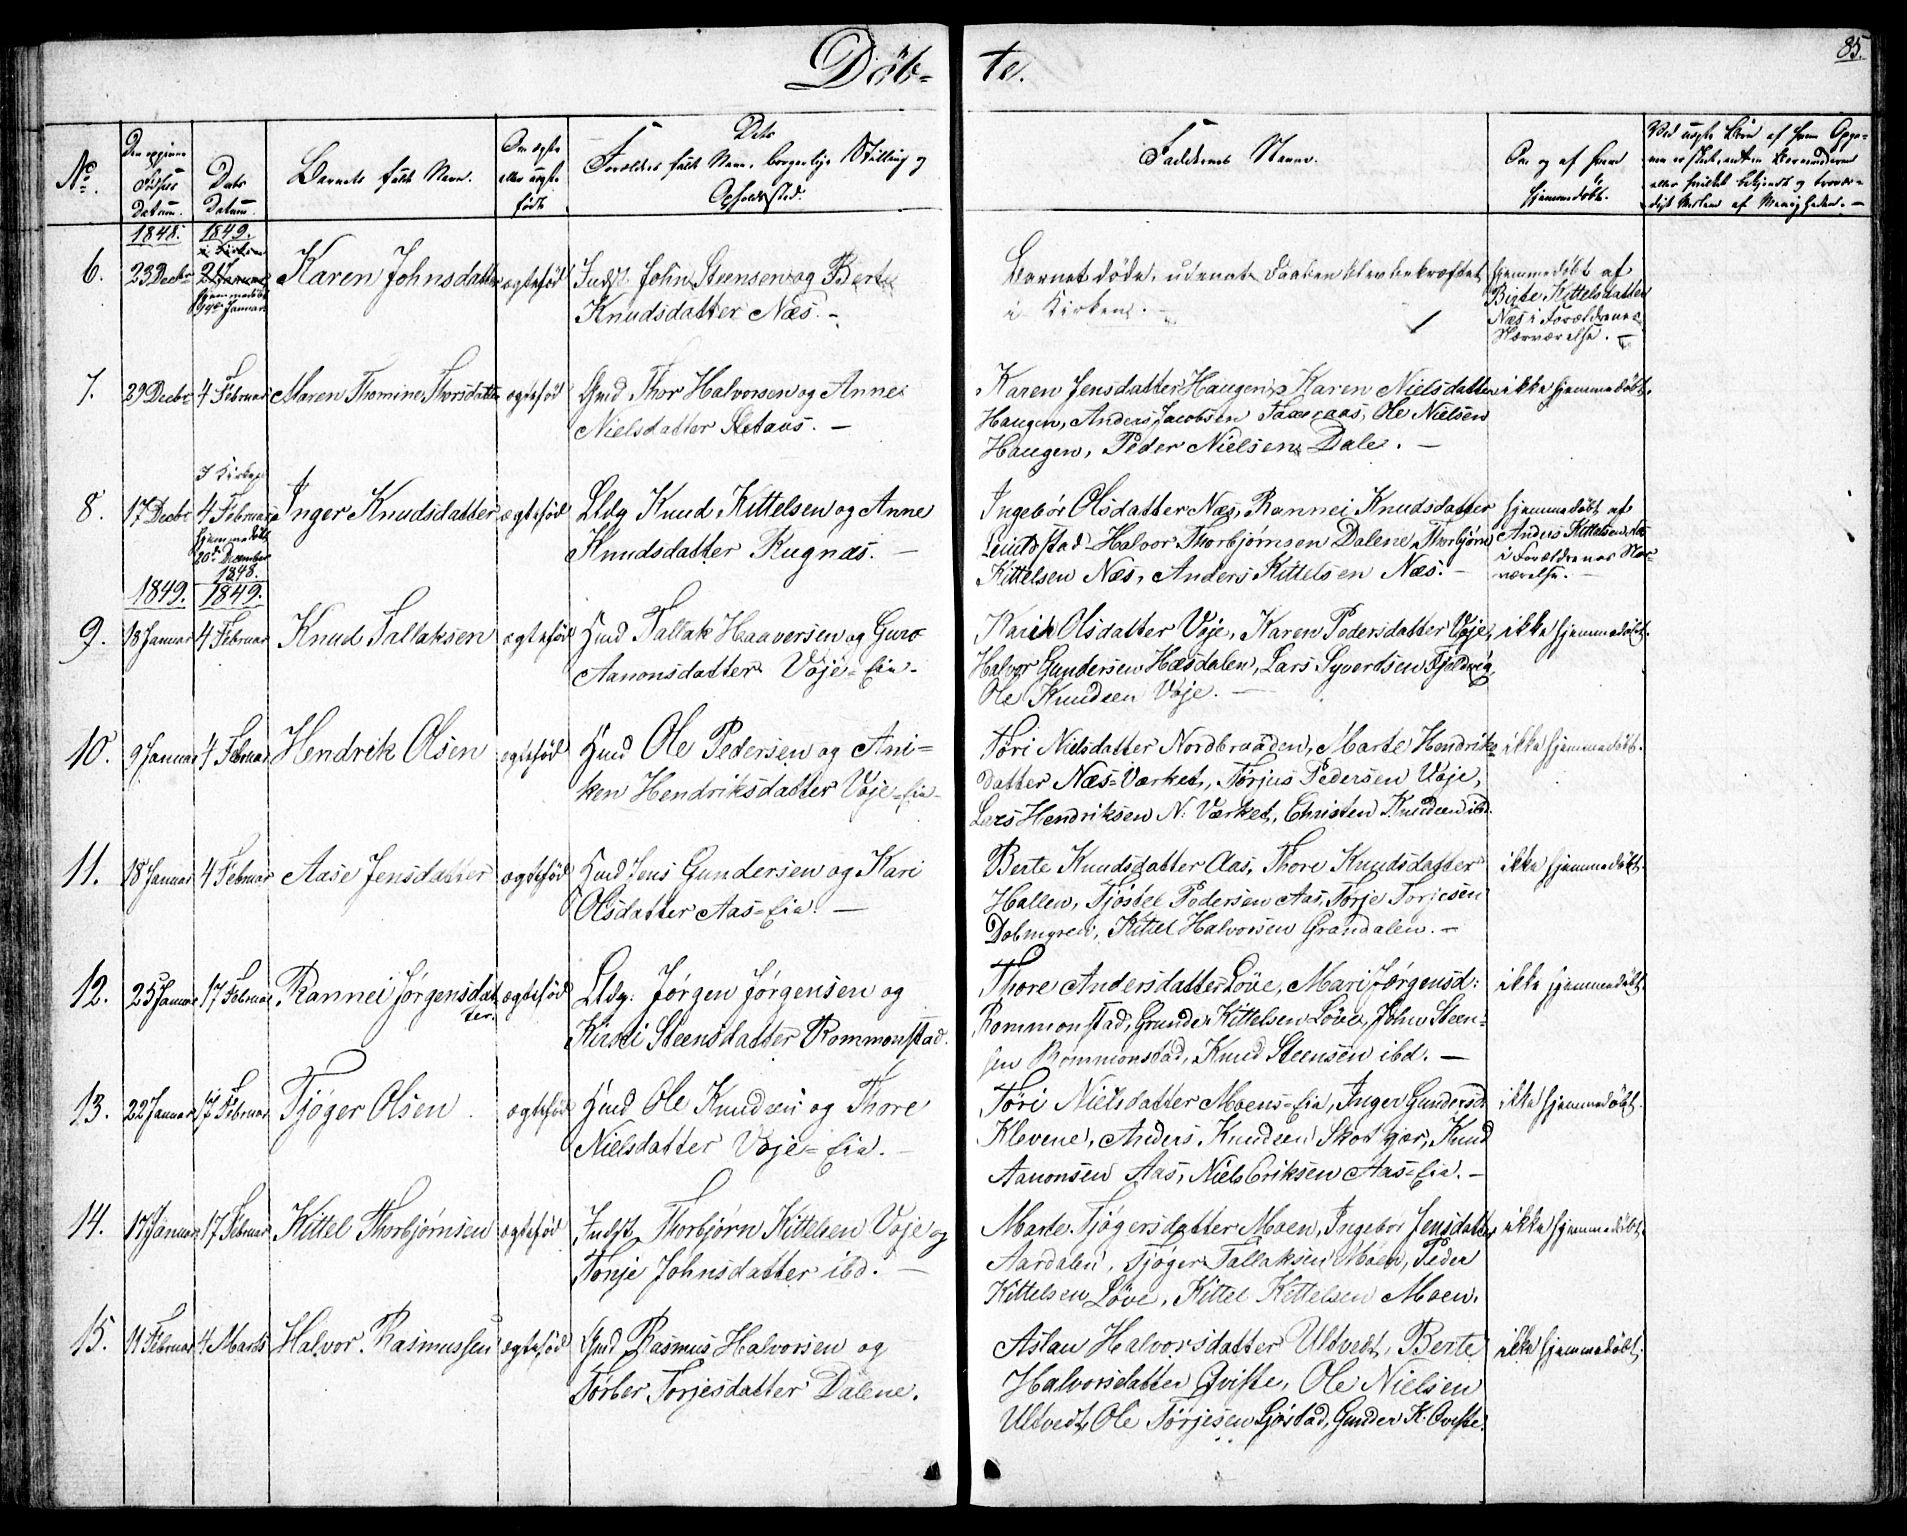 Döb-te.
85.
No.
Den opgivne Fødsels Datum.
Dets Datum.
Barnets fulde Navn.
Om ægte eller uægte født
Dets Forældres fulde Navn, borgerlige Stilling og Opholdssted.
Faddernes Navne.
Om og af hvem hjemmedøbt.
1848. 1849.
6. 23 Decbr 21 Januar hjemmedøbt Januar
Karen Johnsdatter ægtefød
Inds. John Steensen og Berte
Knudsdatter Næs. -
Barnet døde, udenat Daaben blev bekræftet
i Kirken. -
hjemmedøbt af
Birte Kittelsdatter
Næs i Forældrenes
Nærværelse. -
7. 29 Decbr 4 Februar Maren Thomine Thorsdatter ægtefød
Gmd Thor Halvorsen og Anne
Nielsdatter -
Karen Jensdatter Haugen, Karen Nielsdatter
Haugen, Anders Jacobsen Ole Nielsen
Haugen, Peder Nielsen Dale. -
ikke hjemmedøbt.
I Kirken
8. 17 Decbr 4 Februar
hjemmedøbt
20de December
1848.
Inger Knudsdatter ægtefød
Knud Kittelsen og Anne
Knudsdatter Rugnæs. -
Ingebør Olsdatter Næs, Rannei Knudsdatter
Halvor Thorbjørnsen Dalene, Thorbjørn
Kittelsen Næs, Anders Kittelsen Næs. -
hjemmedøbt af
Anders Kittelsen Næs
i Forældrenes Nær-
værelse. -
1849. 1849.
9. 13 Januar 4 Februar Knud Tallaksen ægtefød
Hmd Tallak Haaversen og Guro
Aanonsdatter Voje-Eie.
Karen Olsdatter Voje, Karen Pedersdatter Voje,
Halvor Gundersen Hæsdalen, Lars Syverdsen
Ole Knudsen Voje. -
ikke hjemmedøbt.
10. 9 Januar 4 Februar Hendrik Olsen ægtefød
Hmd Ole Pedersen og Ani-
ken Hendriksdatter Voje-Eie.
Tøri Nielsdatter Nordbraaden, Marte Hendriks-
datter Næs-Værket, Tørjus Pedersen Voje,
Lars Hendriksen N: Værket, Christen Knudsen ibd.
ikke hjemmedøbt.
11. 18 Januar 4 Februar Aase Jensdatter ægtefød
Hmd Jens Gundersen og Kari
Olsdatter Aas-Eie. -
Berte Knudsdatter Aas, Thore Knudsdatter
Hallen, Tjøstel Pedersen Aas, Torje Torjesen
Kittel Halvorsen Grandalen. -
ikke hjemmedøbt.
12. 25 Januar 17 Februar Rannei Jørgensdat-
ter. ægtefød
Jørgen Jørgensen og
Kirsti Steensdatter Rommonstad.
Thore Andersdatter Løve, Mari Jørgensd:
Rommonstad, Gunder Kittelsen Løve, John Steen-
sen Rommonstad, Knud Steensen ibd. -
ikke hjemmedøbt.
13. 22 Januar 17 Februar Tjøger Olsen ægtefød
Hmd Ole Knudsen og Thore
Nielsdatter Voje-Eie. -
Tøri Nielsdatter Moens-Eie, Inger Gundersd.
Klevene, Anders Knudsen Knud
Aanonsen Aas, Niels Eriksen Aas-Eie. -
ikke hjemmedøbt.
14. 17 Januar 17 Februar Kittel Thorbjørnsen ægtefød
Indst. Thorbjørn Kittelsen Voje og
Tonje Johnsdatter ibd. -
Marte Tjøgersdatter Moen, Ingebør Jensdatter
Aardalen, Tjøger Tallaksen Moen, Peder
Kittelsen Løve, Kittel Kittelsen Moen.
ikke hjemmedøbt.
15. 11 Februar 4 Marts Halvor Rasmussen ægtefød
Gmd Rasmus Halvorsen og
Tørber Torjesdatter Dalene.
Aslau Halvorsdatter Ultvedt, Berte
Halvorsdatter Qviste, Ole Nielsen
Ultvedt, Ole Tørjesen Gunder K. Qviste.
ikke hjemmedøbt.